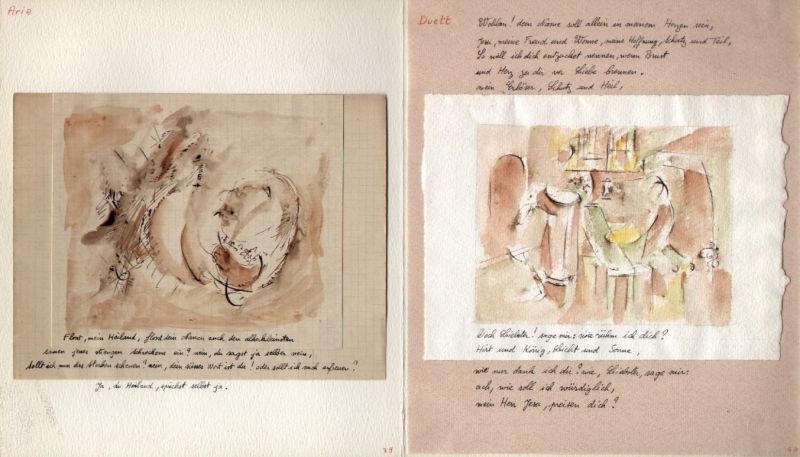 Arie
Flößt, mein Heiland, flößt dein Namen auch den allerkleinsten
Samen jenes strengen Schreckens ein? nein, du sagst ja selber nein,
sollt ich nun das Sterben scheuen? nein, dein süsses Wort ist da! oder soll ich mich erfreuen?
Ja, du Heiland, sprichst selbst ja.
39
Duett
Wohlan! dein Name soll allein in meinem Herzen sein,
Jesu, meine Freud und Wonne, meine Hoffnung, Schatz und Teil,
So will ich dich entzücket nennen, wenn Brust
und Herz zu dir vor Liebe brennen.
mein Erlöser, Schutz und Heil,
Doch Liebster! sage mir: wie rühm ich dich?
Hirt und König, Licht und Sonne,
wie nur dank ich dir? wie, Liebster, sage mir:
ach, wie soll ich würdiglich,
mein Herr Jesu, preisen dich?